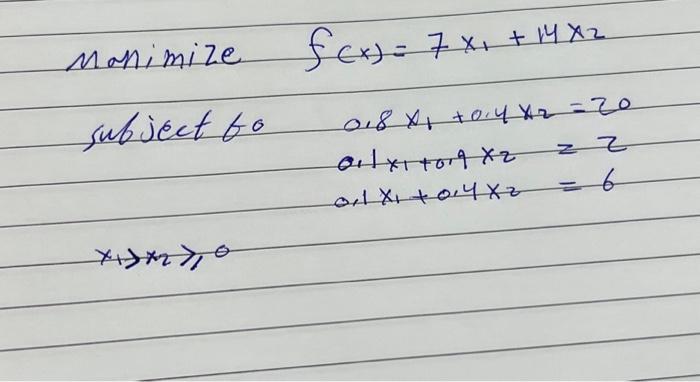 Manimize f(x) = 7x₁ + 14x₂
subject to 0.8x₁ + 0.4x₂ = 20
0.1x₁ + 0.9x₂ = 2
0.1x₁ + 0.4x₂ = 6
x₁, x₂ ⩾ 0